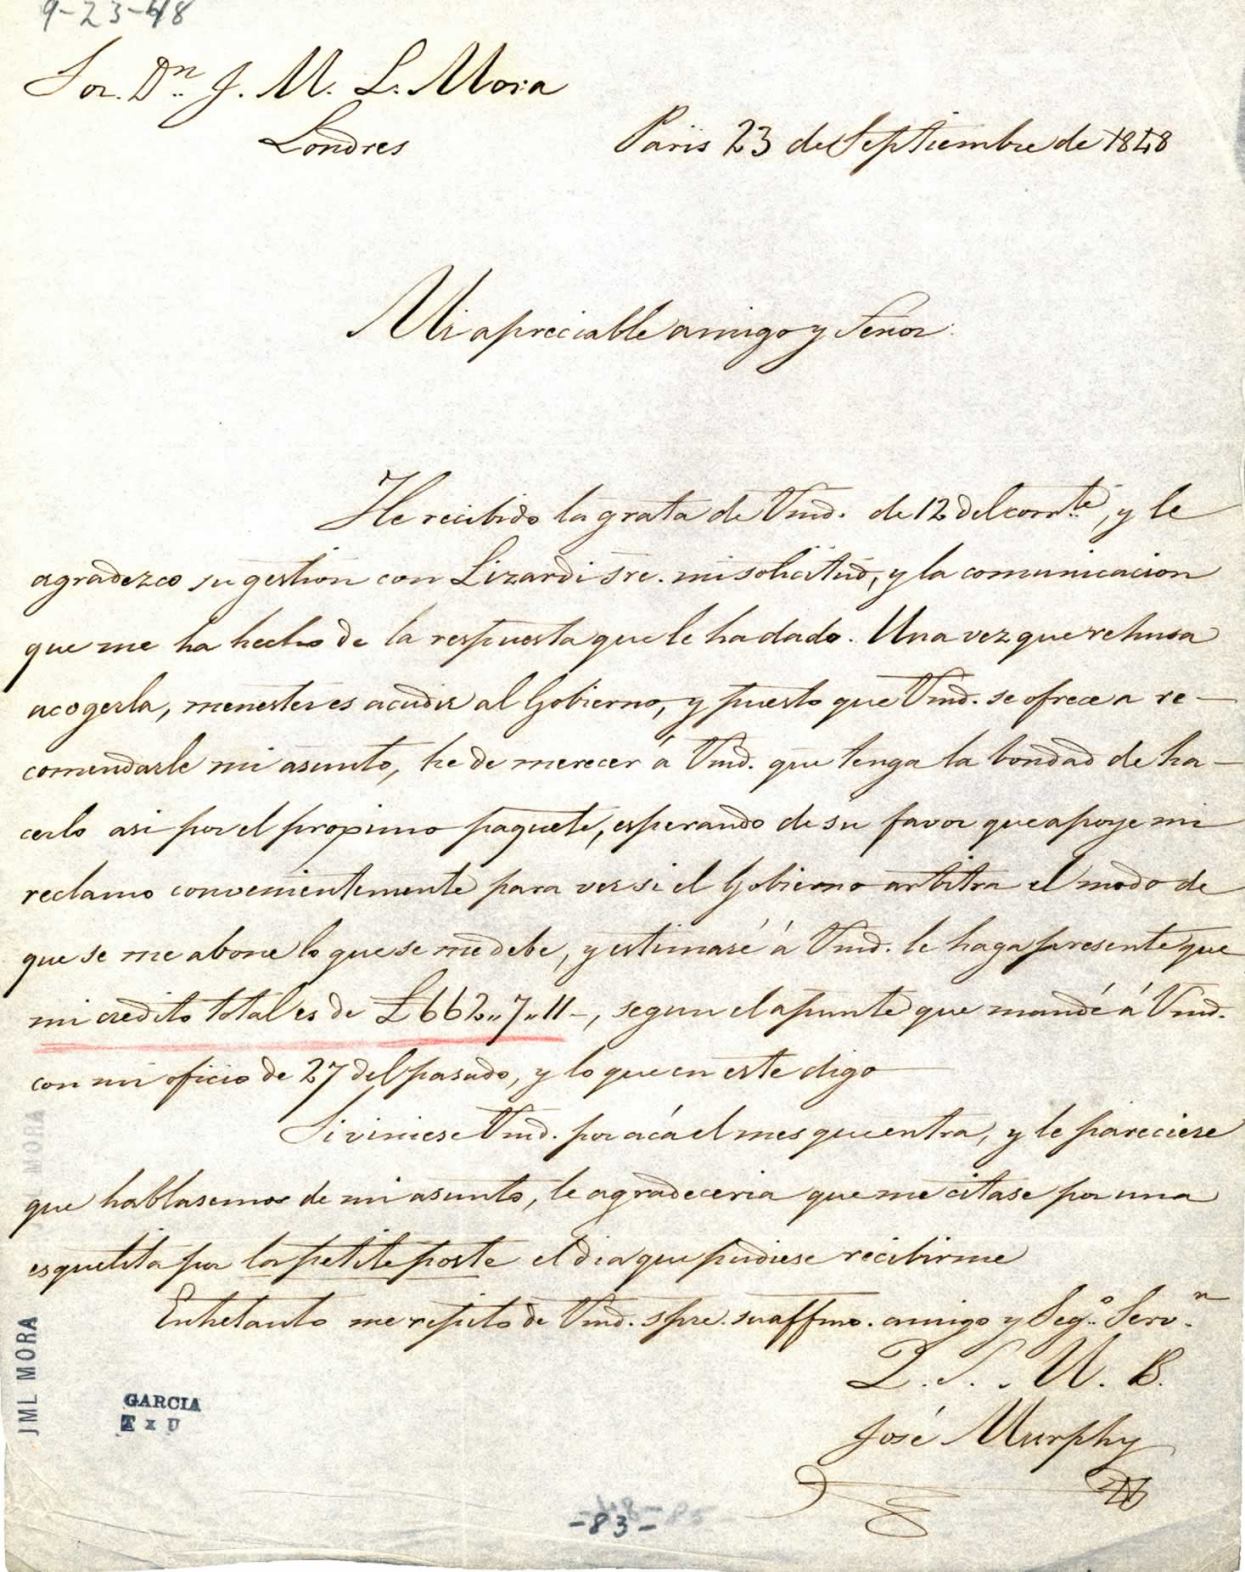 9-23-48
Sor. Dn. J. M. L. Mora
Londres
Paris 23 de Septiembre de 1848
Mi apreciable amigo y Señor:
He recibido la grata de Vmd. de 12 del corrte., y le
agradezco su gestion con Lizardi sre. mi solicitud, y la comunicacion
que me ha hecho de la respuesta que le ha dado. Una vez que rehusa
acogerla, menester es acudir al Gobierno, y puesto que Vmd. se ofrece a re-
comendarle mi asunto, he de merecer á Vmd. que tenga la bondad de ha-
cerlo asi por el proximo paquete, esperando de su favor que apoye mi
reclamo convenientemente para ver si el Gobierno arbitra el modo de
que se me abone lo que se me debe, y estimaré á Vmd. le haga presente que
mi credito total es de £662,,7,,11-, segun el apunte que mandé á Vmd.
con mi oficio de 27 del pasado, y lo que en este digo
Si viniese Vmd. por acá el mes que entra, y le pareciere
que hablasemos de mi asunto, le agradeceria que me citase por una
esquelita por la petite poste el dia que pudiese recibirme
Entretanto me repito de Vmd. spre. su affmo. amigo y Sego. Servn.
Q. S. M. B.
José Murphy
JML MORA
MORA
GARCIA
T x U
-83-